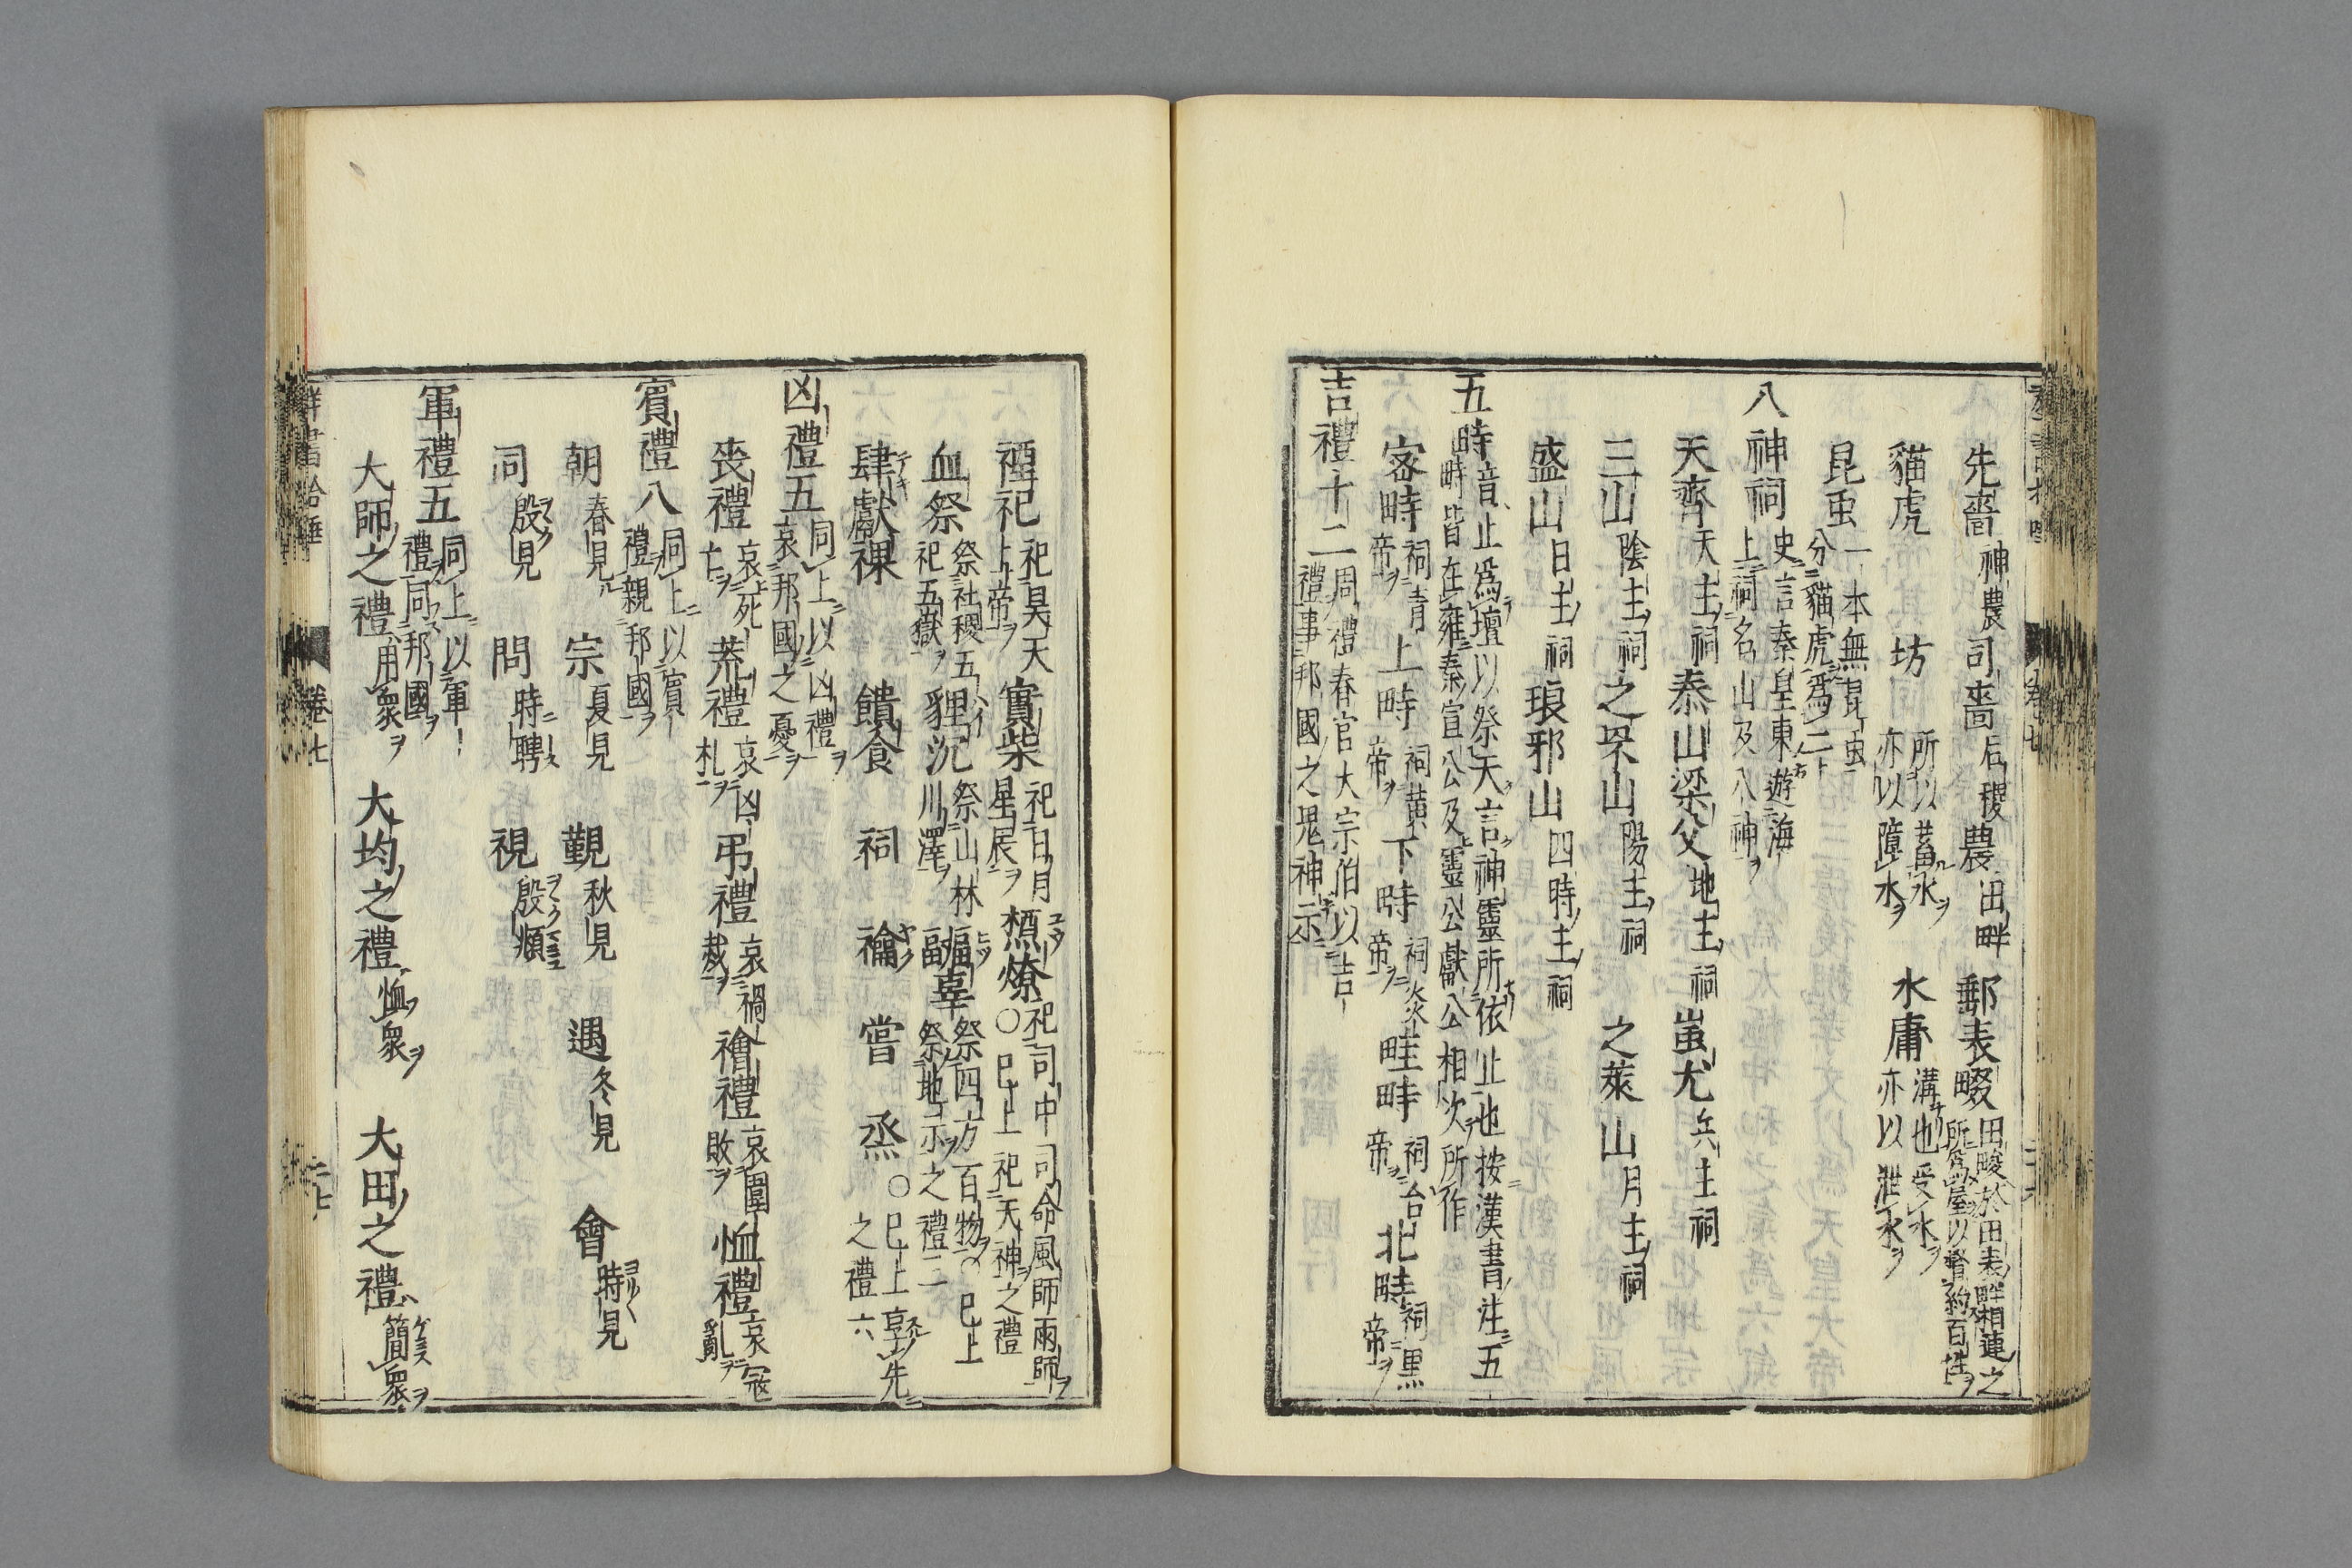 先嗇神農司嗇后稷農田畔郵表畷田畯於田表畔相連之所為屋以督約百姓
貓虎 坊所以蓄水亦以障水 水庸溝也受水亦以泄水
昆虫一本無昆虫分貓虎為二
八神祠史言秦皇東遊海上祠名山及八神
天齊天主祠泰山梁父地主祠蚩尤兵主祠
三山陰主祠之罘山陽主祠 之萊山月主祠
盛山日主祠琅邪山四時主祠
五畤音止為壇以祭天言神靈所依止也按漢書注五畤皆在雍秦宣公及靈公獻公相次所作
密畤祠青帝上畤祠黄帝下畤祠炎帝畦畤祠台帝北畤祠黒帝
吉禮十二周禮春官大宗伯以吉禮事邦國之鬼神示
禋祀祀昊天上帝實柴祀日月星辰槱燎祀司中司命風師雨師○已上祀天神之禮
血祭祭社稷五祀五嶽貍沉祭山林川澤疈辜祭四方百物○已上祭地示之禮二
肆獻祼 饋食 祠 禴 嘗 烝○已上享先之禮六
凶禮五同上以凶禮哀邦國之憂
喪禮哀死亡荒禮哀凶札弔禮哀禍烖禬禮哀圍敗恤禮哀寇亂
賓禮八同上以賓禮親邦國
朝春見 宗夏見 覲秋見 遇冬見 會時見
同殷見 問時聘 視殷頫
軍禮五同上以軍禮同邦國
大師之禮用衆 大均之禮恤衆 大田之禮簡衆
群書拾唾 卷七 二七